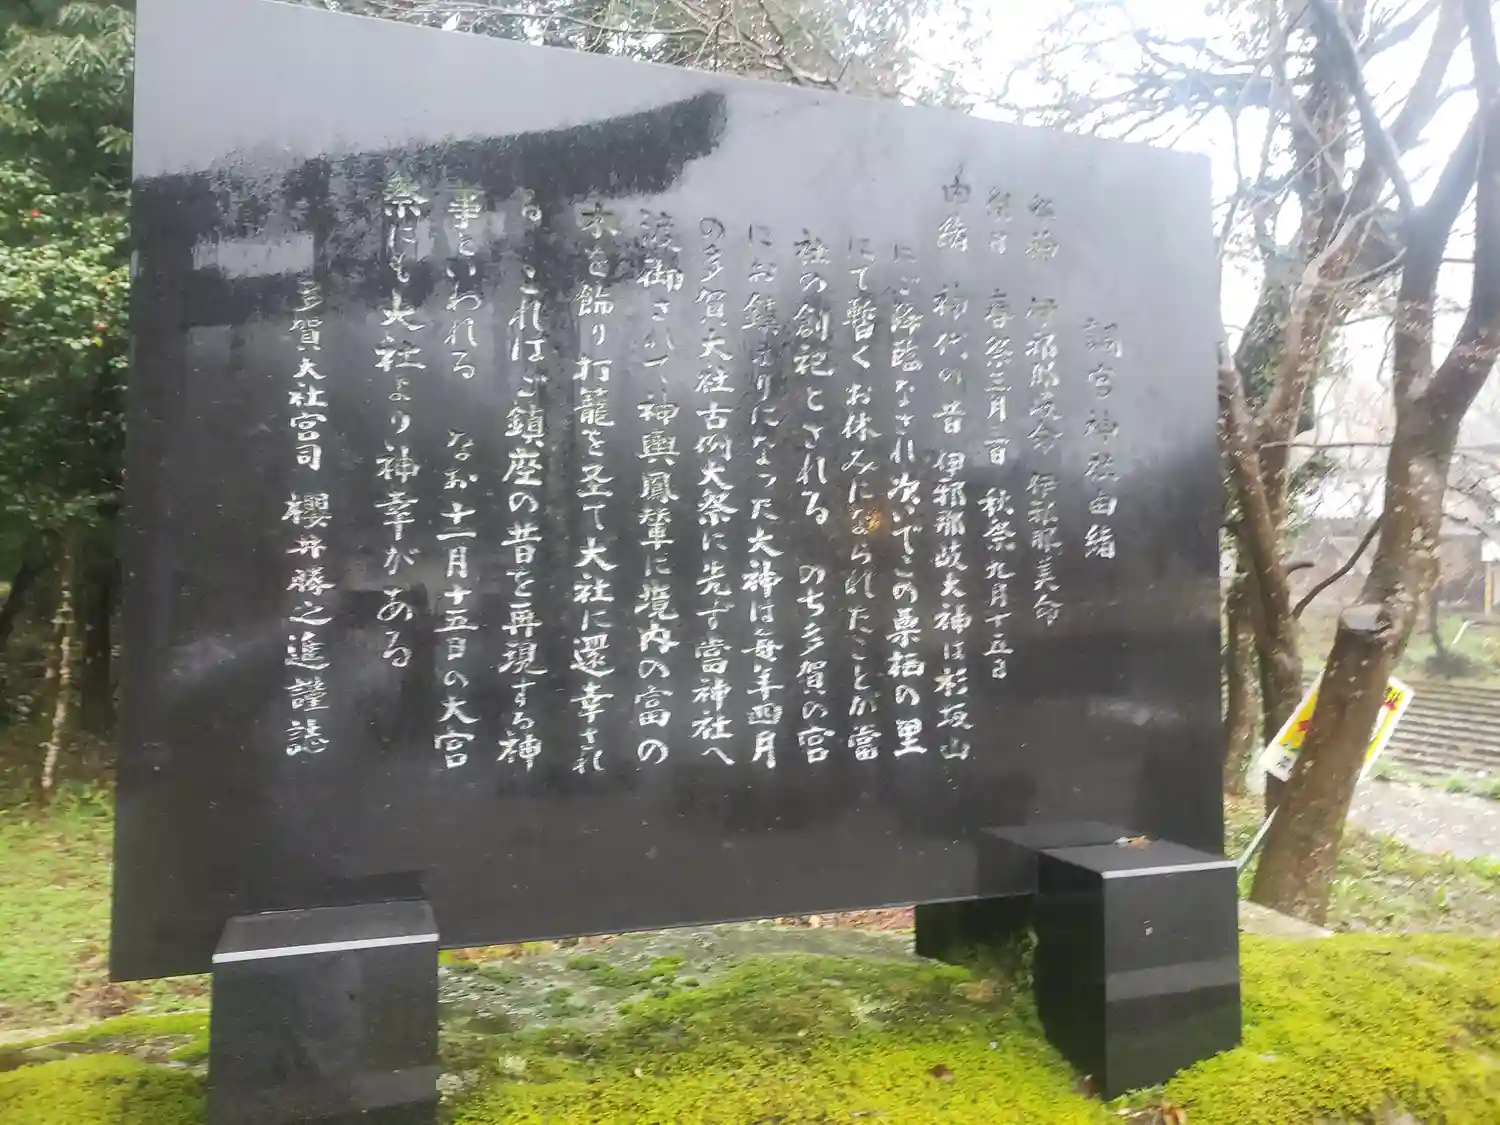 調宮神社由緒
祭神 伊邪那岐命 伊邪那美命
祭日 春祭三月二日 秋祭九月十五日
由緒 神代の昔 伊邪那岐大神は杉坂山
にご降臨なされ次いでこの栗栖の里
にて暫くお休みになられたことが當
社の創祀とされる のち多賀の宮
にお鎮まりになった大神は毎年四月
の多賀大社古例大祭に先ず當神社へ
渡御されて神輿鳳輦に境内の富の
木を飾り打籠を立て大社に還幸され
る これはご鎮座の昔を再現する神
事といわれる なお十一月十五日の大宮
祭にも大社より神幸がある
多賀大社宮司 櫻井勝之進謹誌